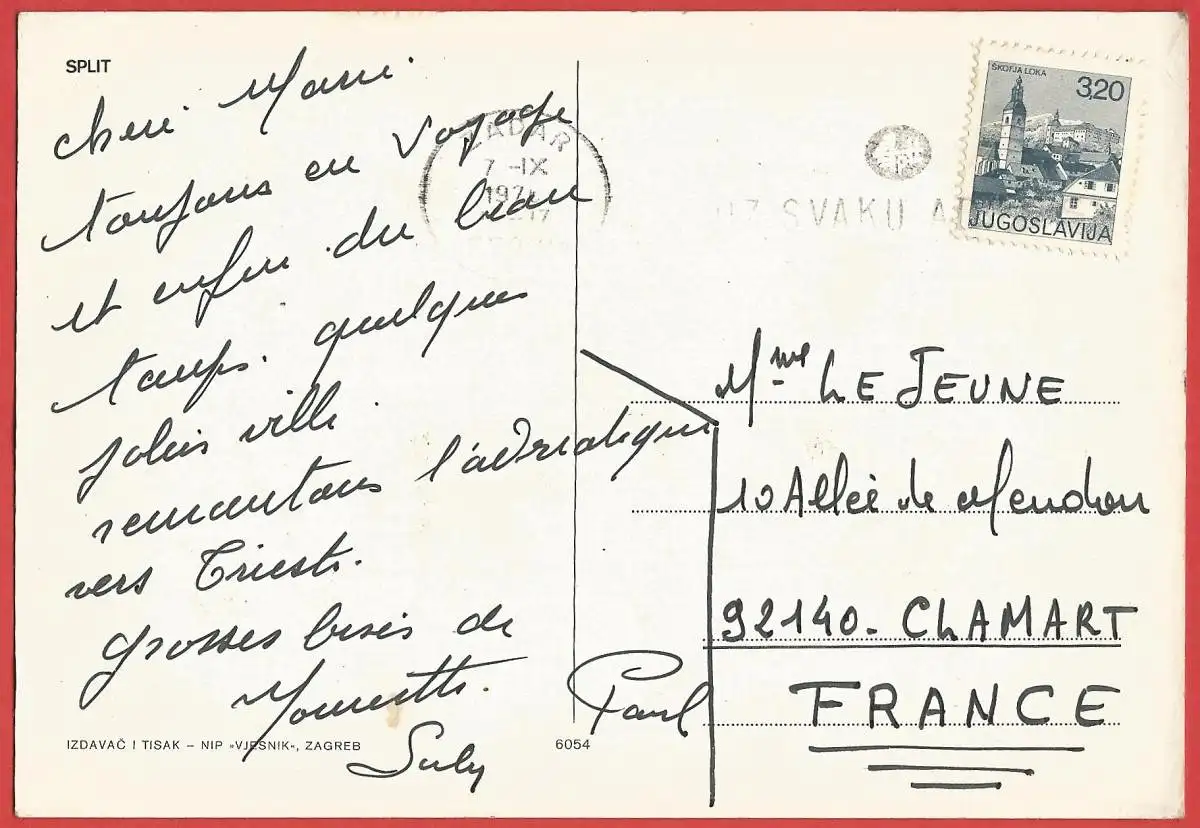 SPLIT
cheri
toujours en voyage
et enfin du beau
temps. quelques
jolies ville
remontons l'adriatique
vers Trieste.
grosses bises de
Suly
Paul
IZDAVAČ I TISAK – NIP »VJESNIK«, ZAGREB
6054
ZADAR
7 -IX
SVAKU
ŠKOFJA LOKA
3,20
JUGOSLAVIJA
Mme LE JEUNE
10 Allée de Meudon
92140. CLAMART
FRANCE